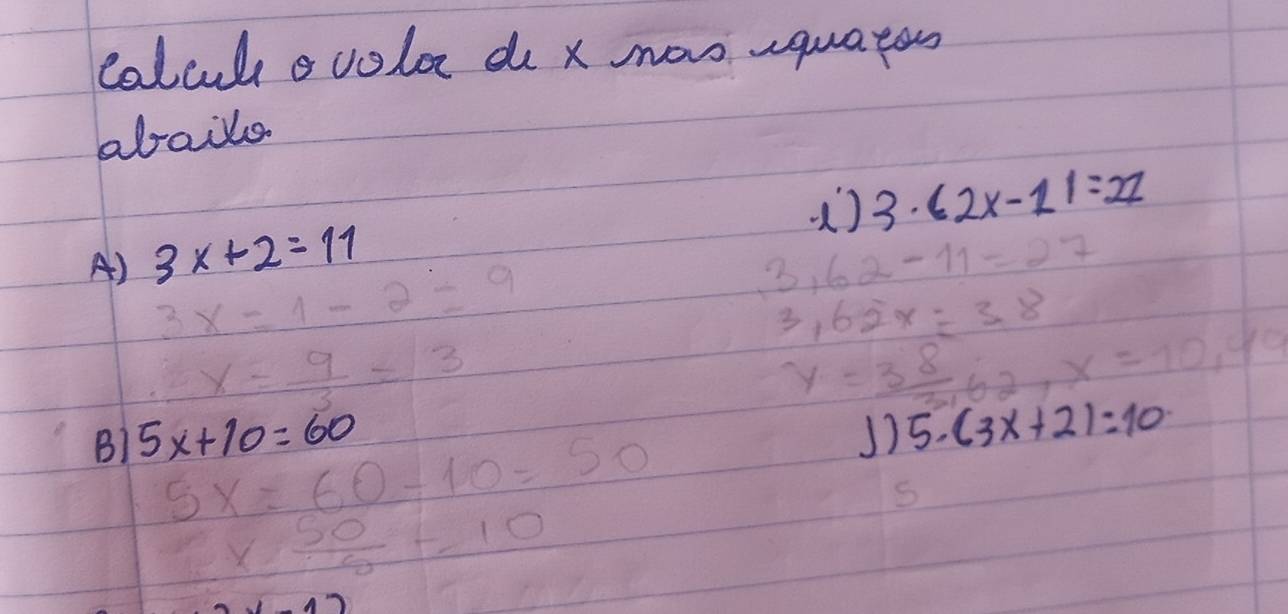 Calcule o valor de x nas equações
abaixo.
A) 3x+2=11
3x = 1 - 2 = 9
x = 9/3 = 3
B) 5x+10=60
5x = 60 - 10 = 50
x 50/5 = 10
i) 3.(2x-1)=27
3,62 - 11 = 27
3,62x = 38
x = 38/3,62, x = 10,49
J) 5.(3x+2)=10
5